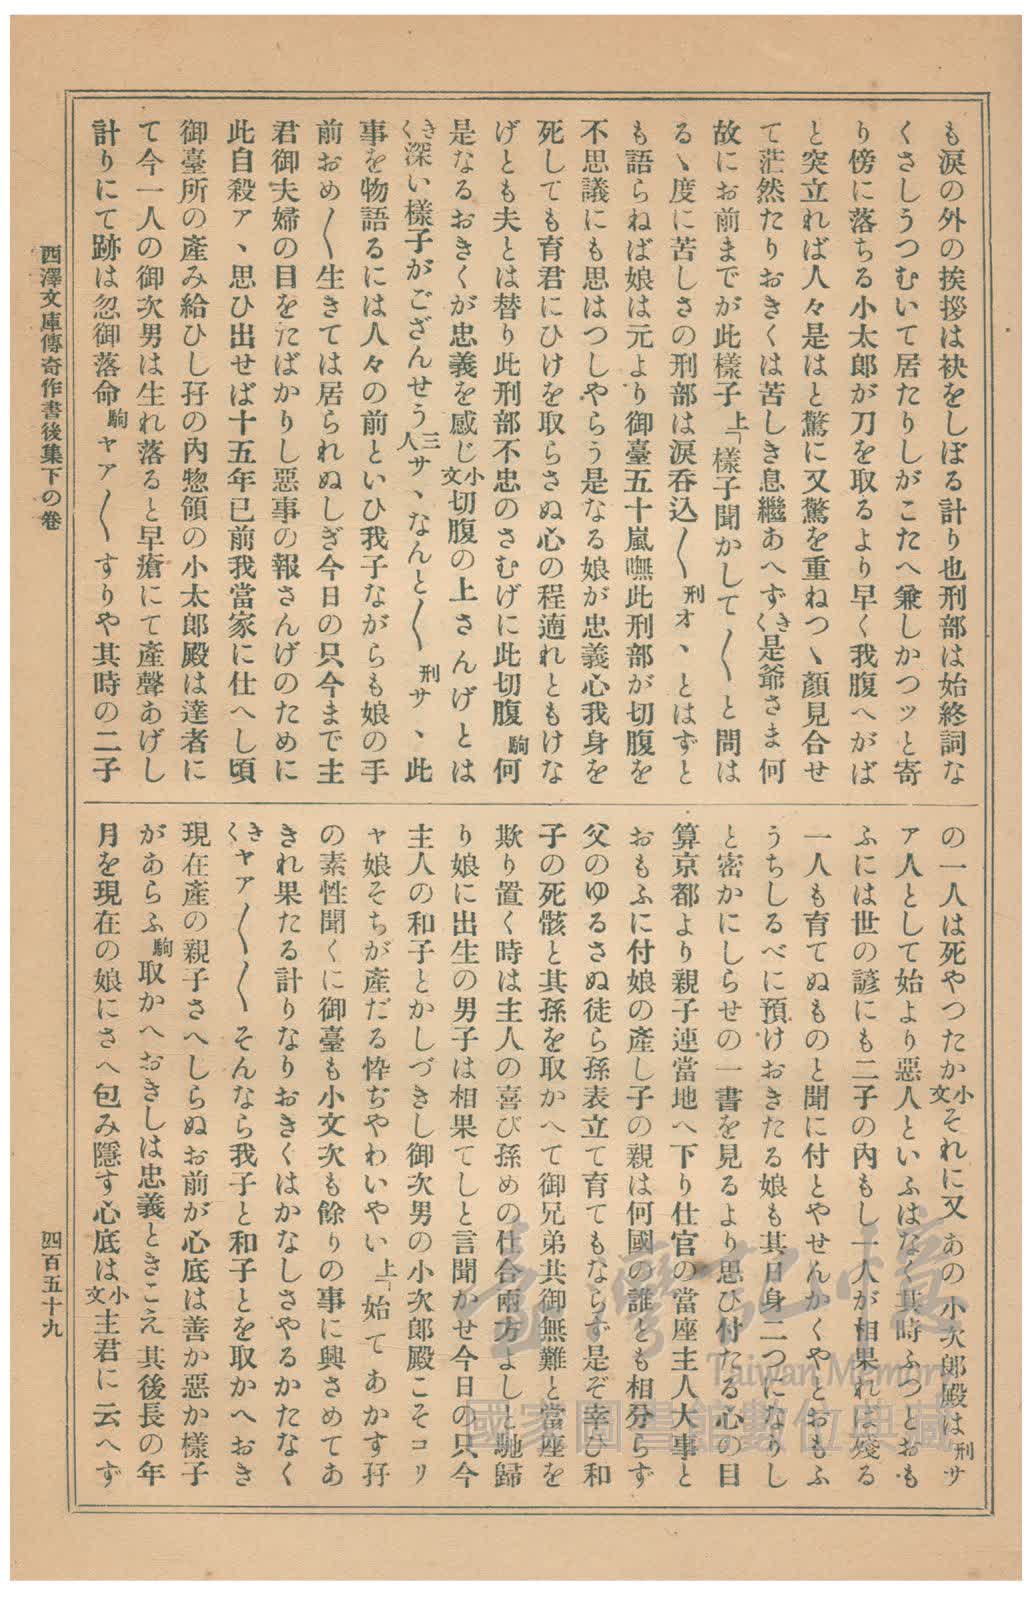 も涙の外の挨拶は袂をしぼる計り也刑部は始終詞な
くさしうつむいて居たりしがこたへ兼しかつッと寄
り傍に落ちる小太郎が刀を取るより早く我腹へがば
と突立れば人々是はと驚に又驚を重ねつゝ顏見合せ
て茫然たりおきくは苦しき息繼あへずきく是爺さま何
故にお前までが此樣子上「樣子聞かして〳〵と問は
るゝ度に苦しさの刑部は涙呑込〳〵刑オヽとはずと
も語らねば娘は元より御臺五十嵐嘸此刑部が切腹を
不思議にも思はつしやらう是なる娘が忠義心我身を
死しても育君にひけを取らさぬ心の程適れともけな
げとも夫とは替り此刑部不忠のさむげに此切腹駒何
是なるおきくが忠義を感じ小文切腹の上さんげとは
きく深い樣子がござんせう三人サヽなんと〳〵刑サヽ此
事を物語るには人々の前といひ我子ながらも娘の手
前おめ〳〵生きては居られぬしぎ今日の只今まで主
君御夫婦の目をたばかりし惡事の報さんげのために
此自殺アヽ思ひ出せば十五年已前我當家に仕へし頃
御臺所の產み給ひし孖の內惣領の小太郎殿は達者に
て今一人の御次男は生れ落ると早瘡にて產聲あげし
計りにて跡は忽御落命駒ヤア〳〵すりや其時の二子
の一人は死やつたか小文それに又あの小次郎殿は刑サ
ア人として始より惡人といふはなく其時ふつとおも
ふには世の諺にも二子の內もし一人が相果れば殘る
一人も育てぬものと聞に付とやせんかくやとおもふ
うちしるべに預けおきたる娘も其日身二つになりし
と密かにしらせの一書を見るより思ひ付たる心の目
算京都より親子連當地へ下り仕官の當座主人大事と
おもふに付娘の產し子の親は何國の誰とも相分らず
父のゆるさぬ徒ら孫表立て育てもならず是ぞ幸ひ和
子の死骸と其孫を取かへて御兄弟共御無難と當座を
欺り置く時は主人の喜び孫めの仕合兩方よしと馳歸
り娘に出生の男子は相果てしと言聞かせ今日の只今
主人の和子とかしづきし御次男の小次郎殿こそコリ
ャ娘そちが產だる忰ぢやわいやい上「始てあかす孖
の素性聞くに御臺も小文次も餘りの事に興さめてあ
きれ果たる計りなりおきくはかなしさやるかたなく
きくヤア〳〵〳〵そんなら我子と和子とを取かへおき
現在產の親子さへしらぬお前が心底は善か惡か樣子
があらふ駒取かへおきしは忠義ときこえ其後長の年
月を現在の娘にさへ包み隱す心底は小文主君に云へず
西澤文庫傳奇作書後集下の卷
四百五十九
臺灣記憶
Taiwan Memory
國家圖書館數位典藏